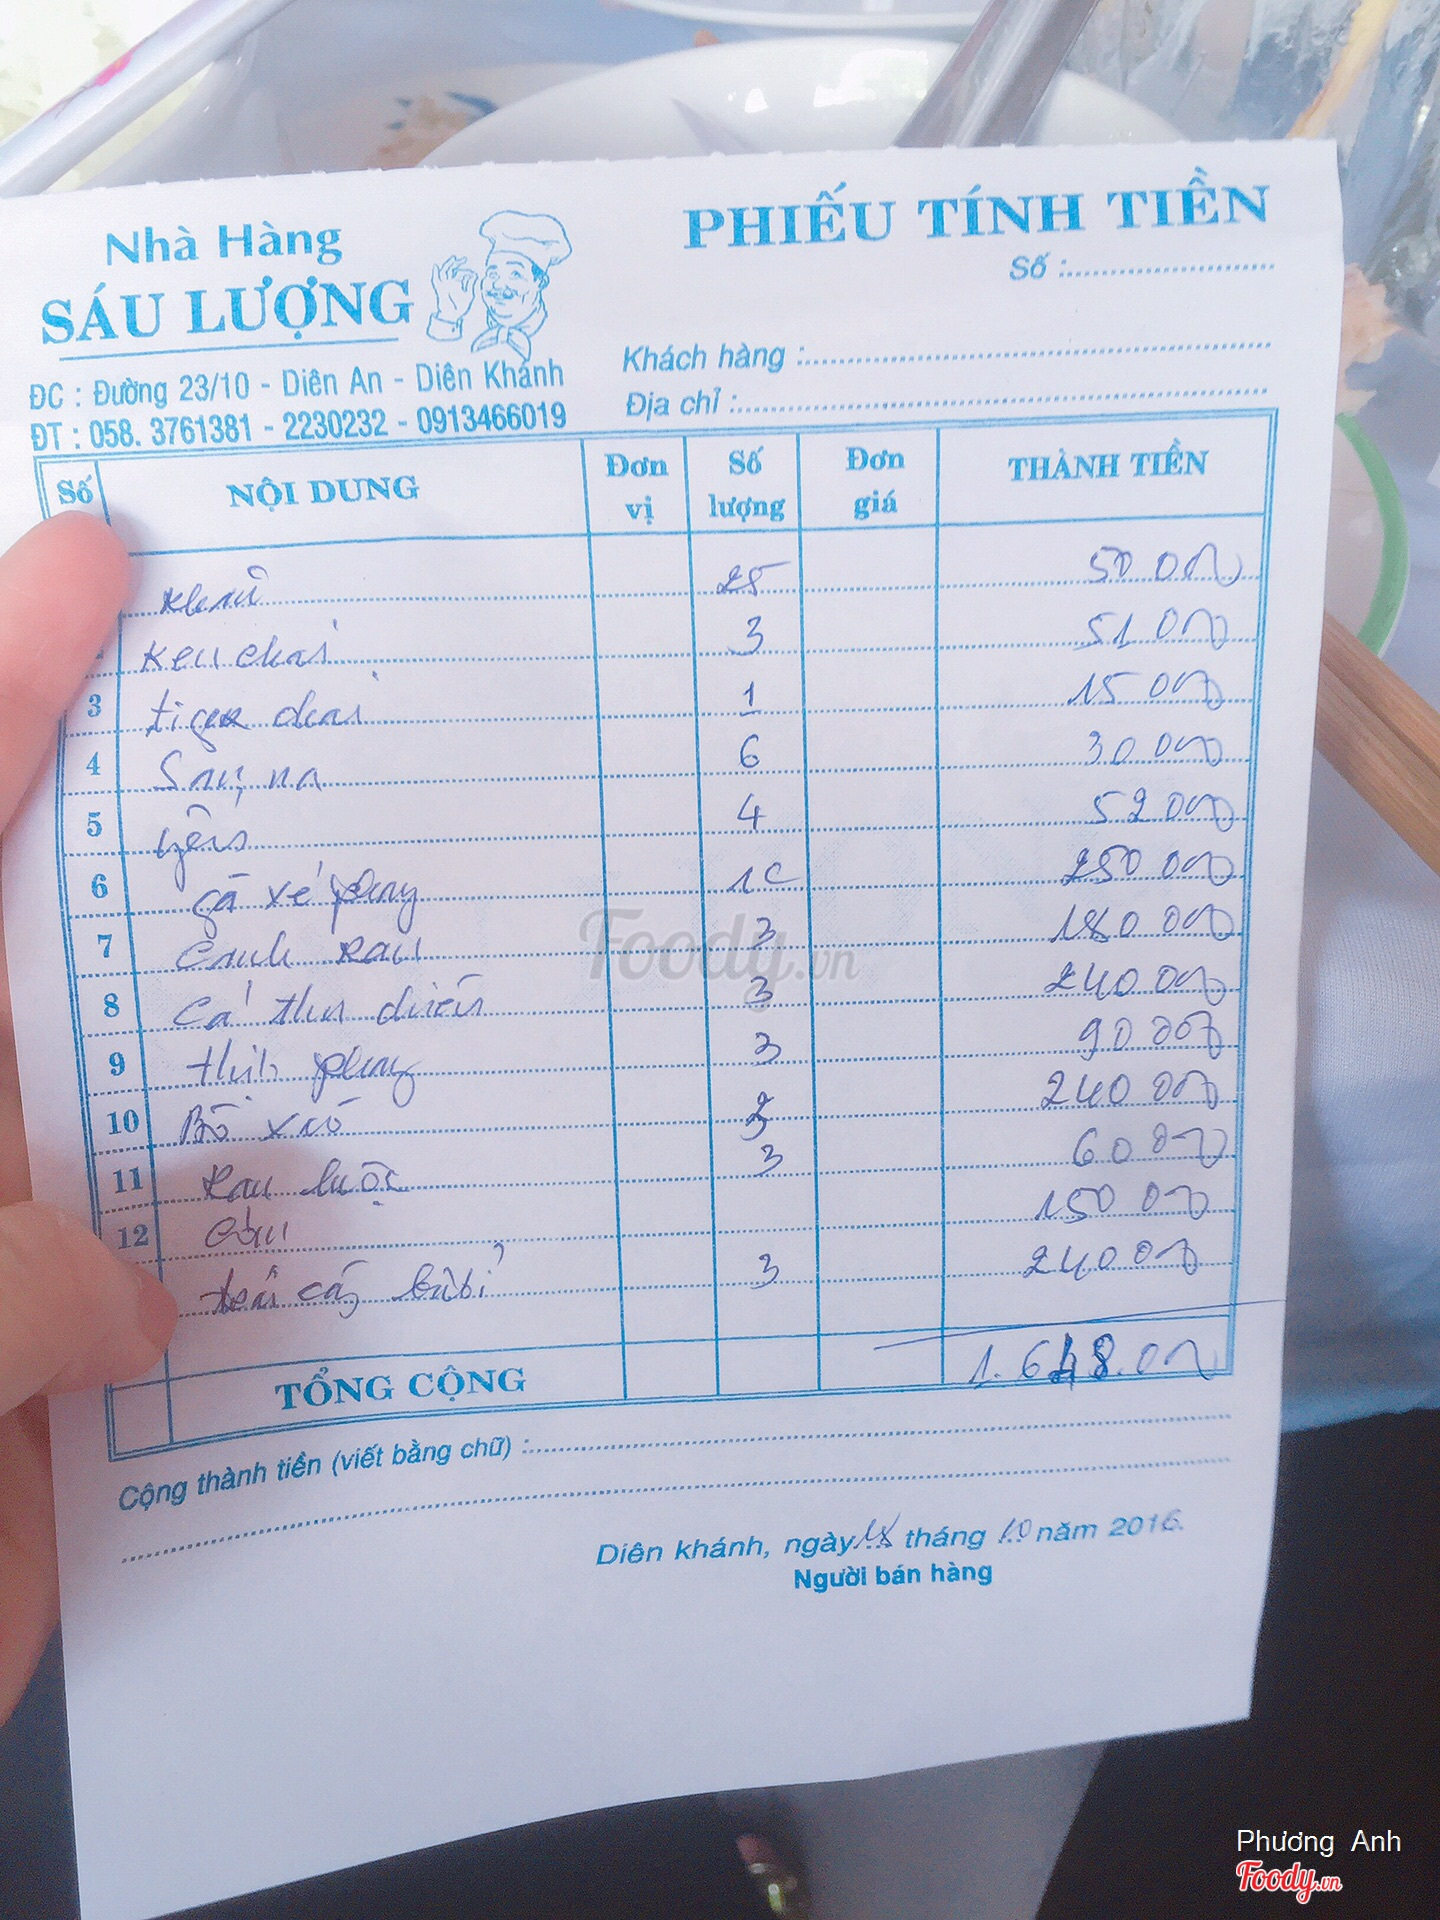 Nhà Hàng
SÁU LƯỢNG
ĐC : Đường 23/10 - Diên An - Diên Khánh
ĐT : 058. 3761381 - 2230232 - 0913466019
PHIẾU TÍNH TIỀN
Số :
Khách hàng :
Địa chỉ :
Số NỘI DUNG Đơn vị Số lượng Đơn giá THÀNH TIỀN
Khăn 25 50 000
Ken chai 3 51 000
3 tiger chai 1 15 000
4 6 30 000
5 yến 4 52 000
6 gà xé phay 1C 250 000
7 canh rau 3 180 000
8 Cá thu chiên 3 240 000
9 3 90 000
10 Bò xào 3 240 000
11 Rau luộc 3 60 000
12 Cơm 150 000
3 240 000
TỔNG CỘNG 1.648.000
Cộng thành tiền (viết bằng chữ) :
Diên khánh, ngày 18 tháng 10 năm 2016.
Người bán hàng
Foody.vn
Phương Anh
Foody.vn